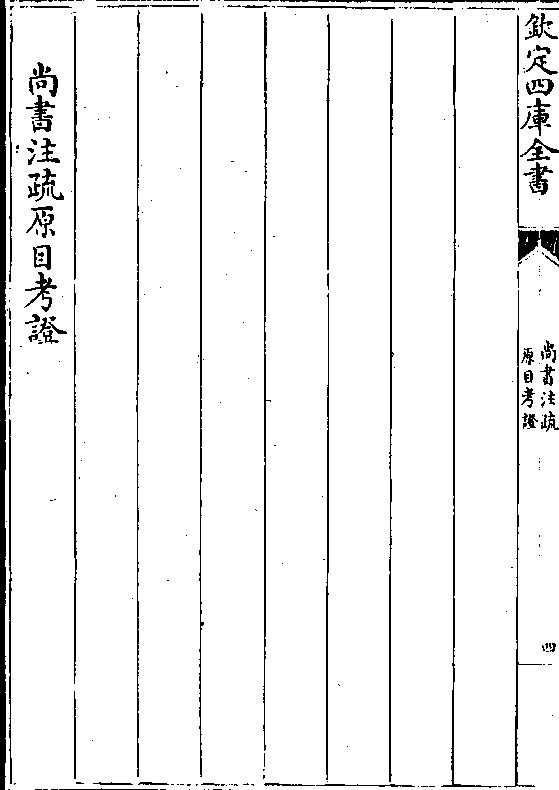 欽定四庫全書
尚書注疏
原目考證
四
尚書注疏原目考證